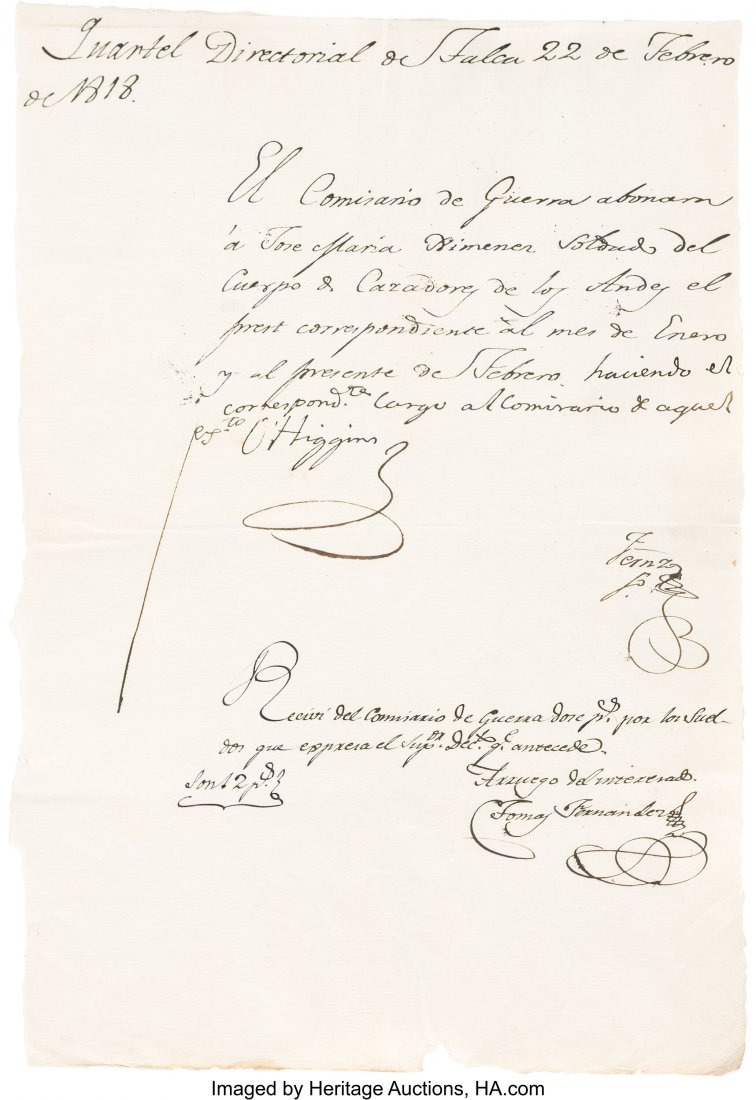 Quartel Directorial de Talca 22 de Febrero
de 1818.
El Comisario de Guerra abonara
á Jose Maria Ximenez Soldado del
Cuerpo de Cazadores de los Andes el
prest correspondiente al mes de Enero
y al presente de Febrero haciendo el
correspond.te Cargo al Comisario de aquel
ex.to O'Higgins
Fernz
Recivi del Comisario de Guerra dose p.s por los Suel-
dos que expresa el Sup.or Dec.to q.e antecede.
Son 12 p.s
Arruego del interesado.
Tomas Fernandez
Imaged by Heritage Auctions, HA.com